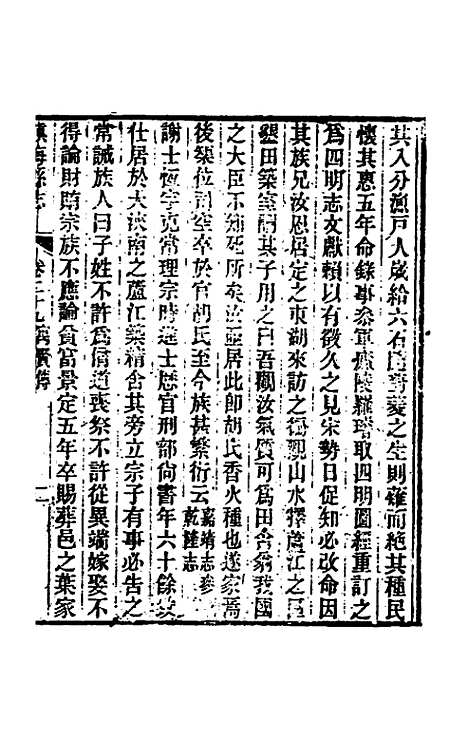 其入分漁戶人歲給六石隨茭菱之生則薙而絕其種民
懷其惠五年命錄事參軍廬陵羅璿取四明圖經重訂之
爲四明志文獻賴以有徵久之見宋勢日促知必改命因
其族兄汝恩居定之東湖來訪之德觀山水擇蘆江之
墾田築室謂其子用之曰吾觀汝氣質可爲田舍翁我國
之大臣不知死所矣汝宜居此卽胡氏香火種也遂家焉
後築位司空卒於官胡氏至今族甚繁衍云嘉靖志參乾隆志
謝士恆字克常理宗時進士歷官刑部尙書年六十餘致
仕居於大浹南之蘆江築精舍其旁立宗子有事必告之
常誡族人曰子姓不許爲僧道喪祭不許從異端嫁娶不
得論財賄宗族不應論貧富景定五年卒賜葬邑之葉家
鎮海縣志
卷二十九 寓賢傳